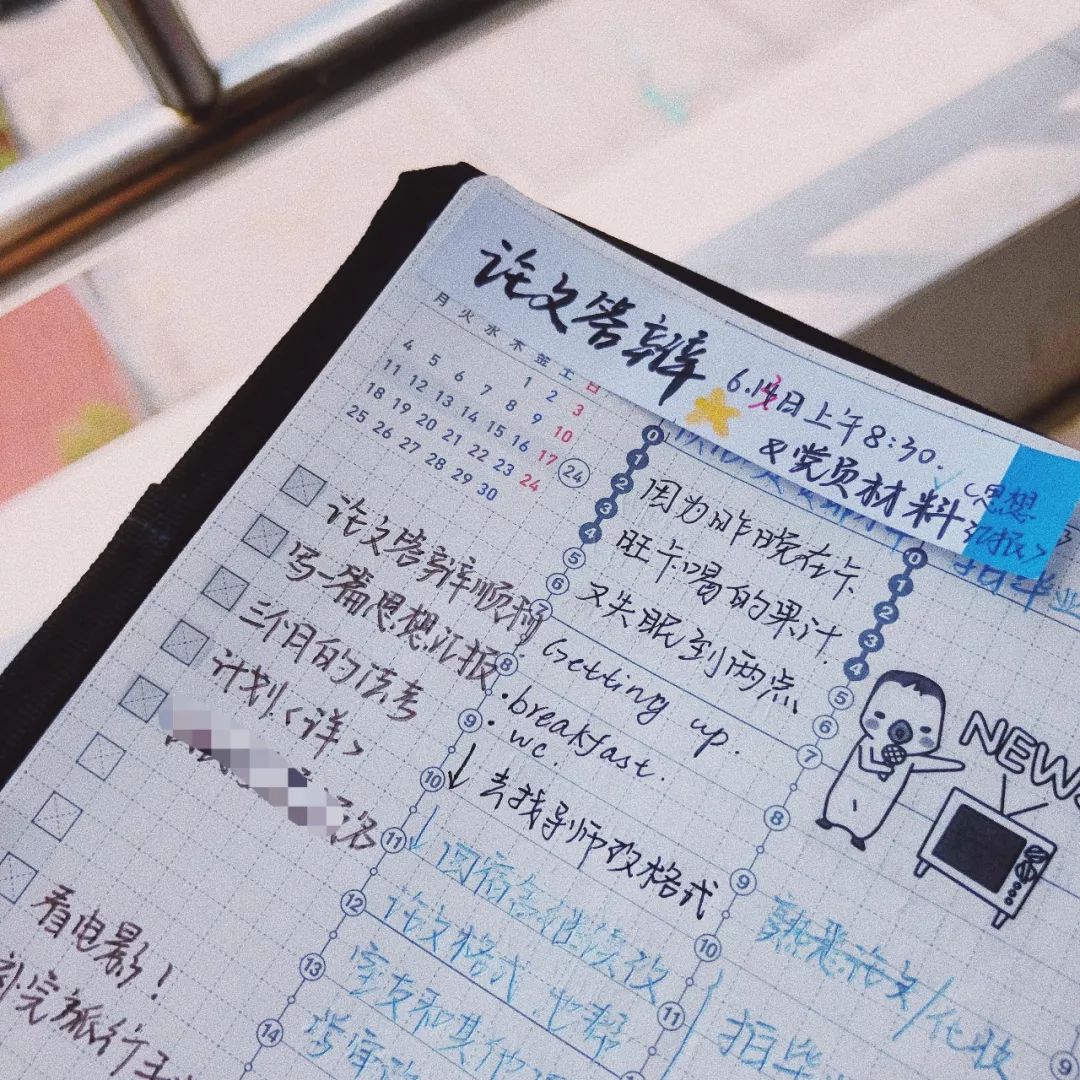 论文答辩
6.13日上午8:30.
&党员材料
<思想
汇报>
月 火 水 木 金 土 日
1 2 3
4 5 6 7 8 9 10
11 12 13 14 15 16 17
18 19 20 21 22 23 24
25 26 27 28 29 30
24
论文答辩顺稿
写一篇思想汇报
三个月的法考
计划<详>
看电影!
补完旅行
0
1
2
3
4
5
6
7
8
9
10
11
12
13
14
因为昨晚在卡
旺卡喝的果汁
又失眠到两点
Getting up.
·breakfast.
·wc.
↓去找导师改格式
↓回宿舍继续改
论文格式 也帮
室友和其他
0
1
2
3
4
5
6
7
8
9
10
11
NEWS
熟悉论文/化妆
拍毕
9